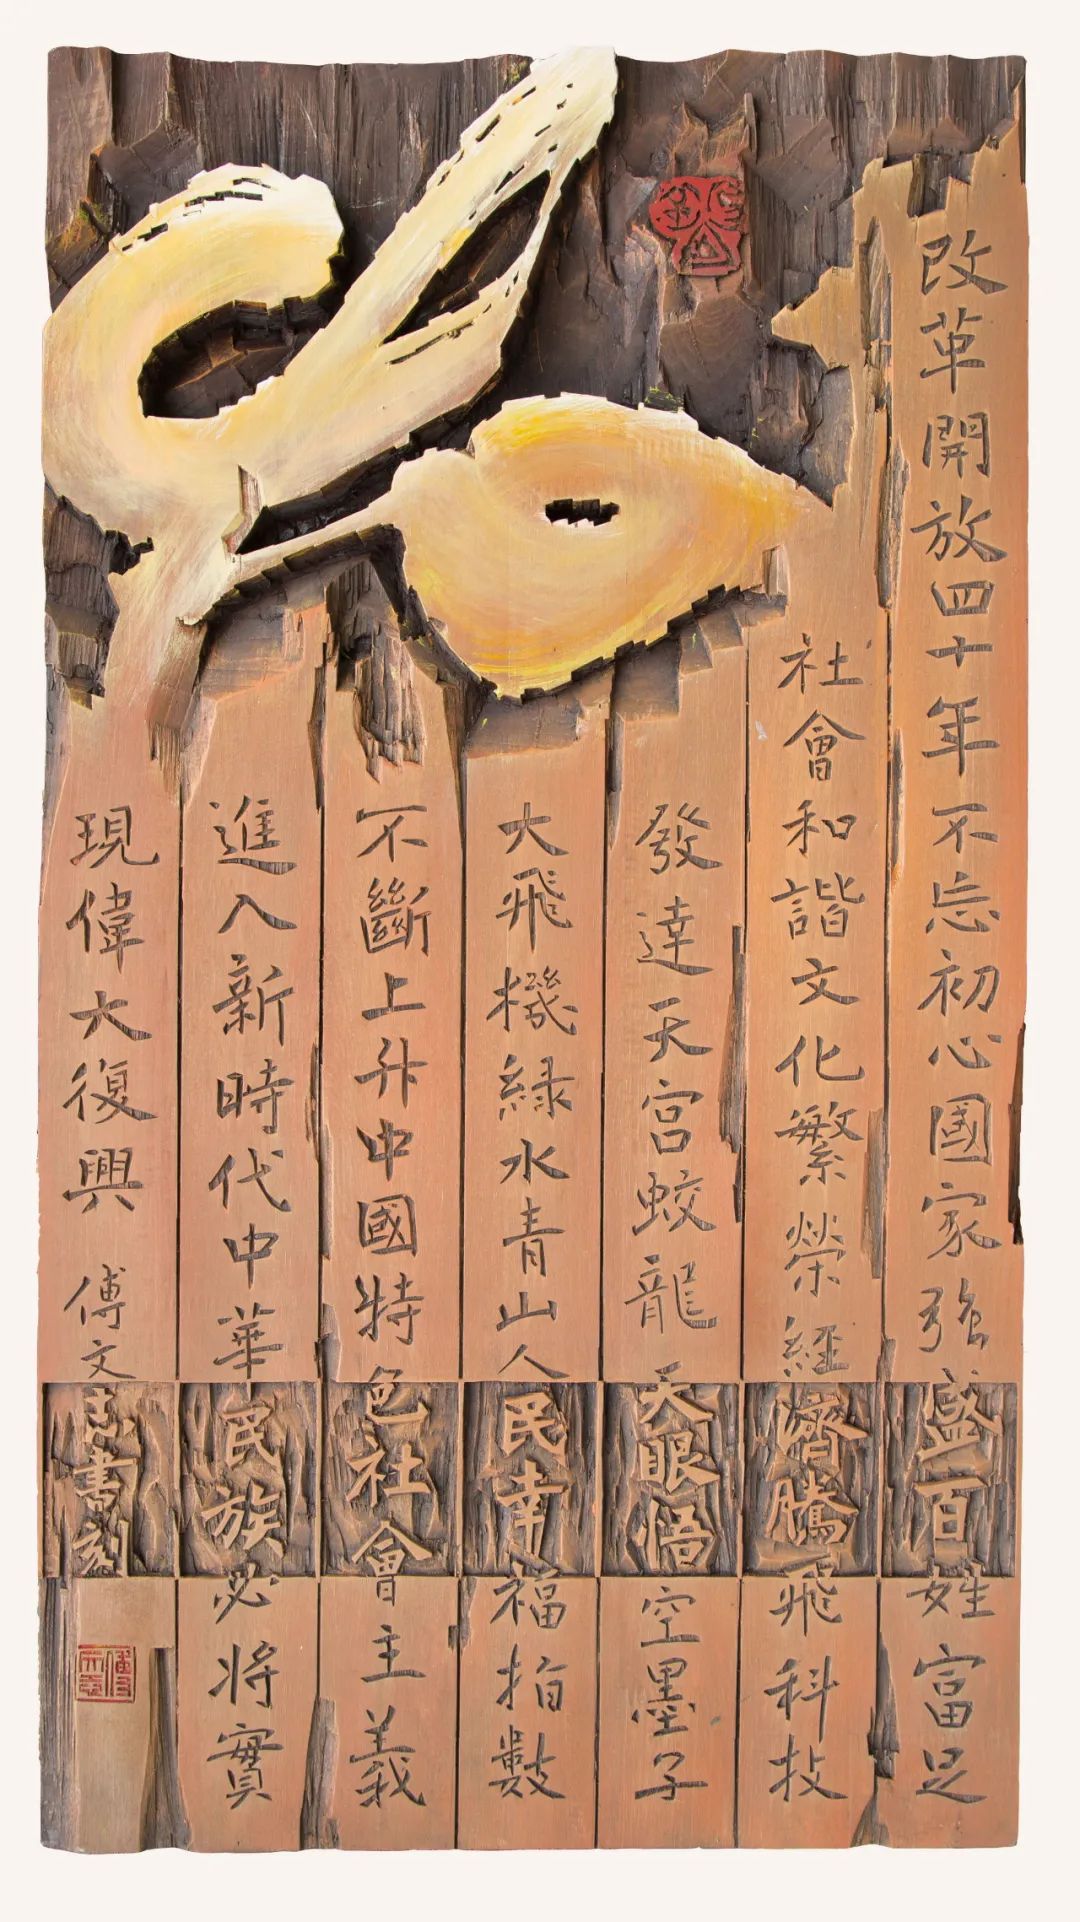 改革開放四十年不忘初心國家強盛百姓富足
社會和諧文化繁榮經濟騰飛科技
發達天宮蛟龍天眼悟空墨子
大飛機緑水青山人民幸福指數
不斷上升中國特色社會主義
進入新時代中華民族必將實
現偉大復興 傅文志書刻